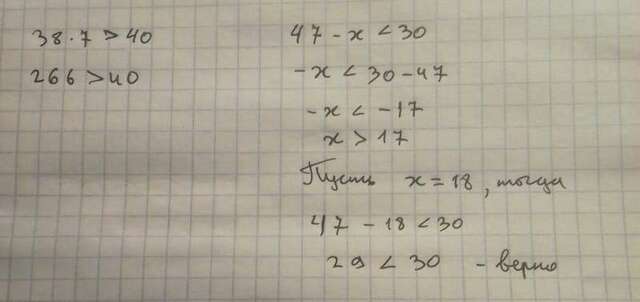 38·7 > 40
266 > 40
47 - x < 30
-x < 30-47
-x < -17
x > 17
Пусть x = 18, тогда
47 - 18 < 30
29 < 30 - верно